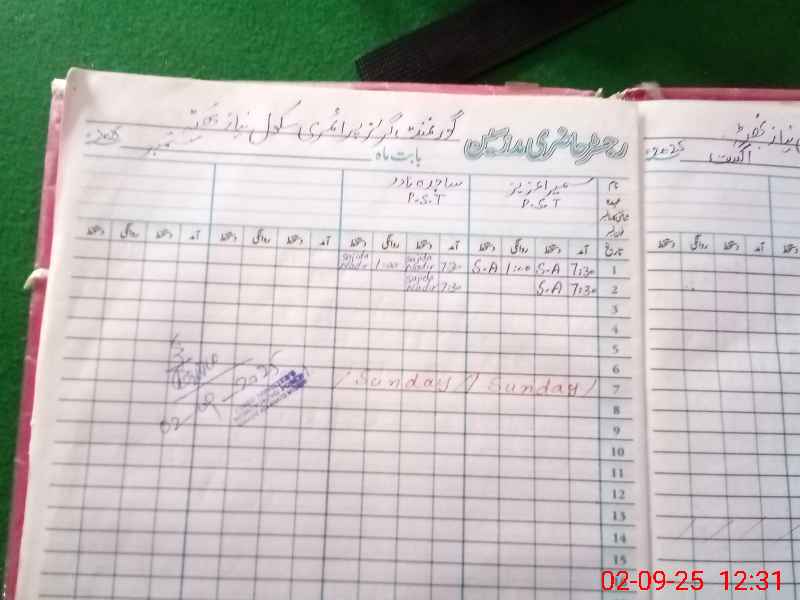 گورنمنٹ گرلز پرائمری سکول نیاز
رجسٹر حاضری مدرسین
بابت ماہ ستمبر 2025
نام
عہدہ
تاریخ
سمیرا عزیز
P.S.T
ساجدہ نادر
P.S.T
آمد دستخط روانگی دستخط آمد دستخط روانگی دستخط آمد دستخط روانگی دستخط آمد دستخط روانگی دستخط
1 7:30 S.A 1:00 S.A 7:30 Sajida Nadir 1:00 Sajida Nadir
2 7:30 S.A 7:30 Sajida Nadir
3
4
5
6
7 Sunday Sunday
8
9
10
11
12
13
14
15
02-09-2025
اگست 2025
دستخط روانگی دستخط آمد
02-09-25 12:31